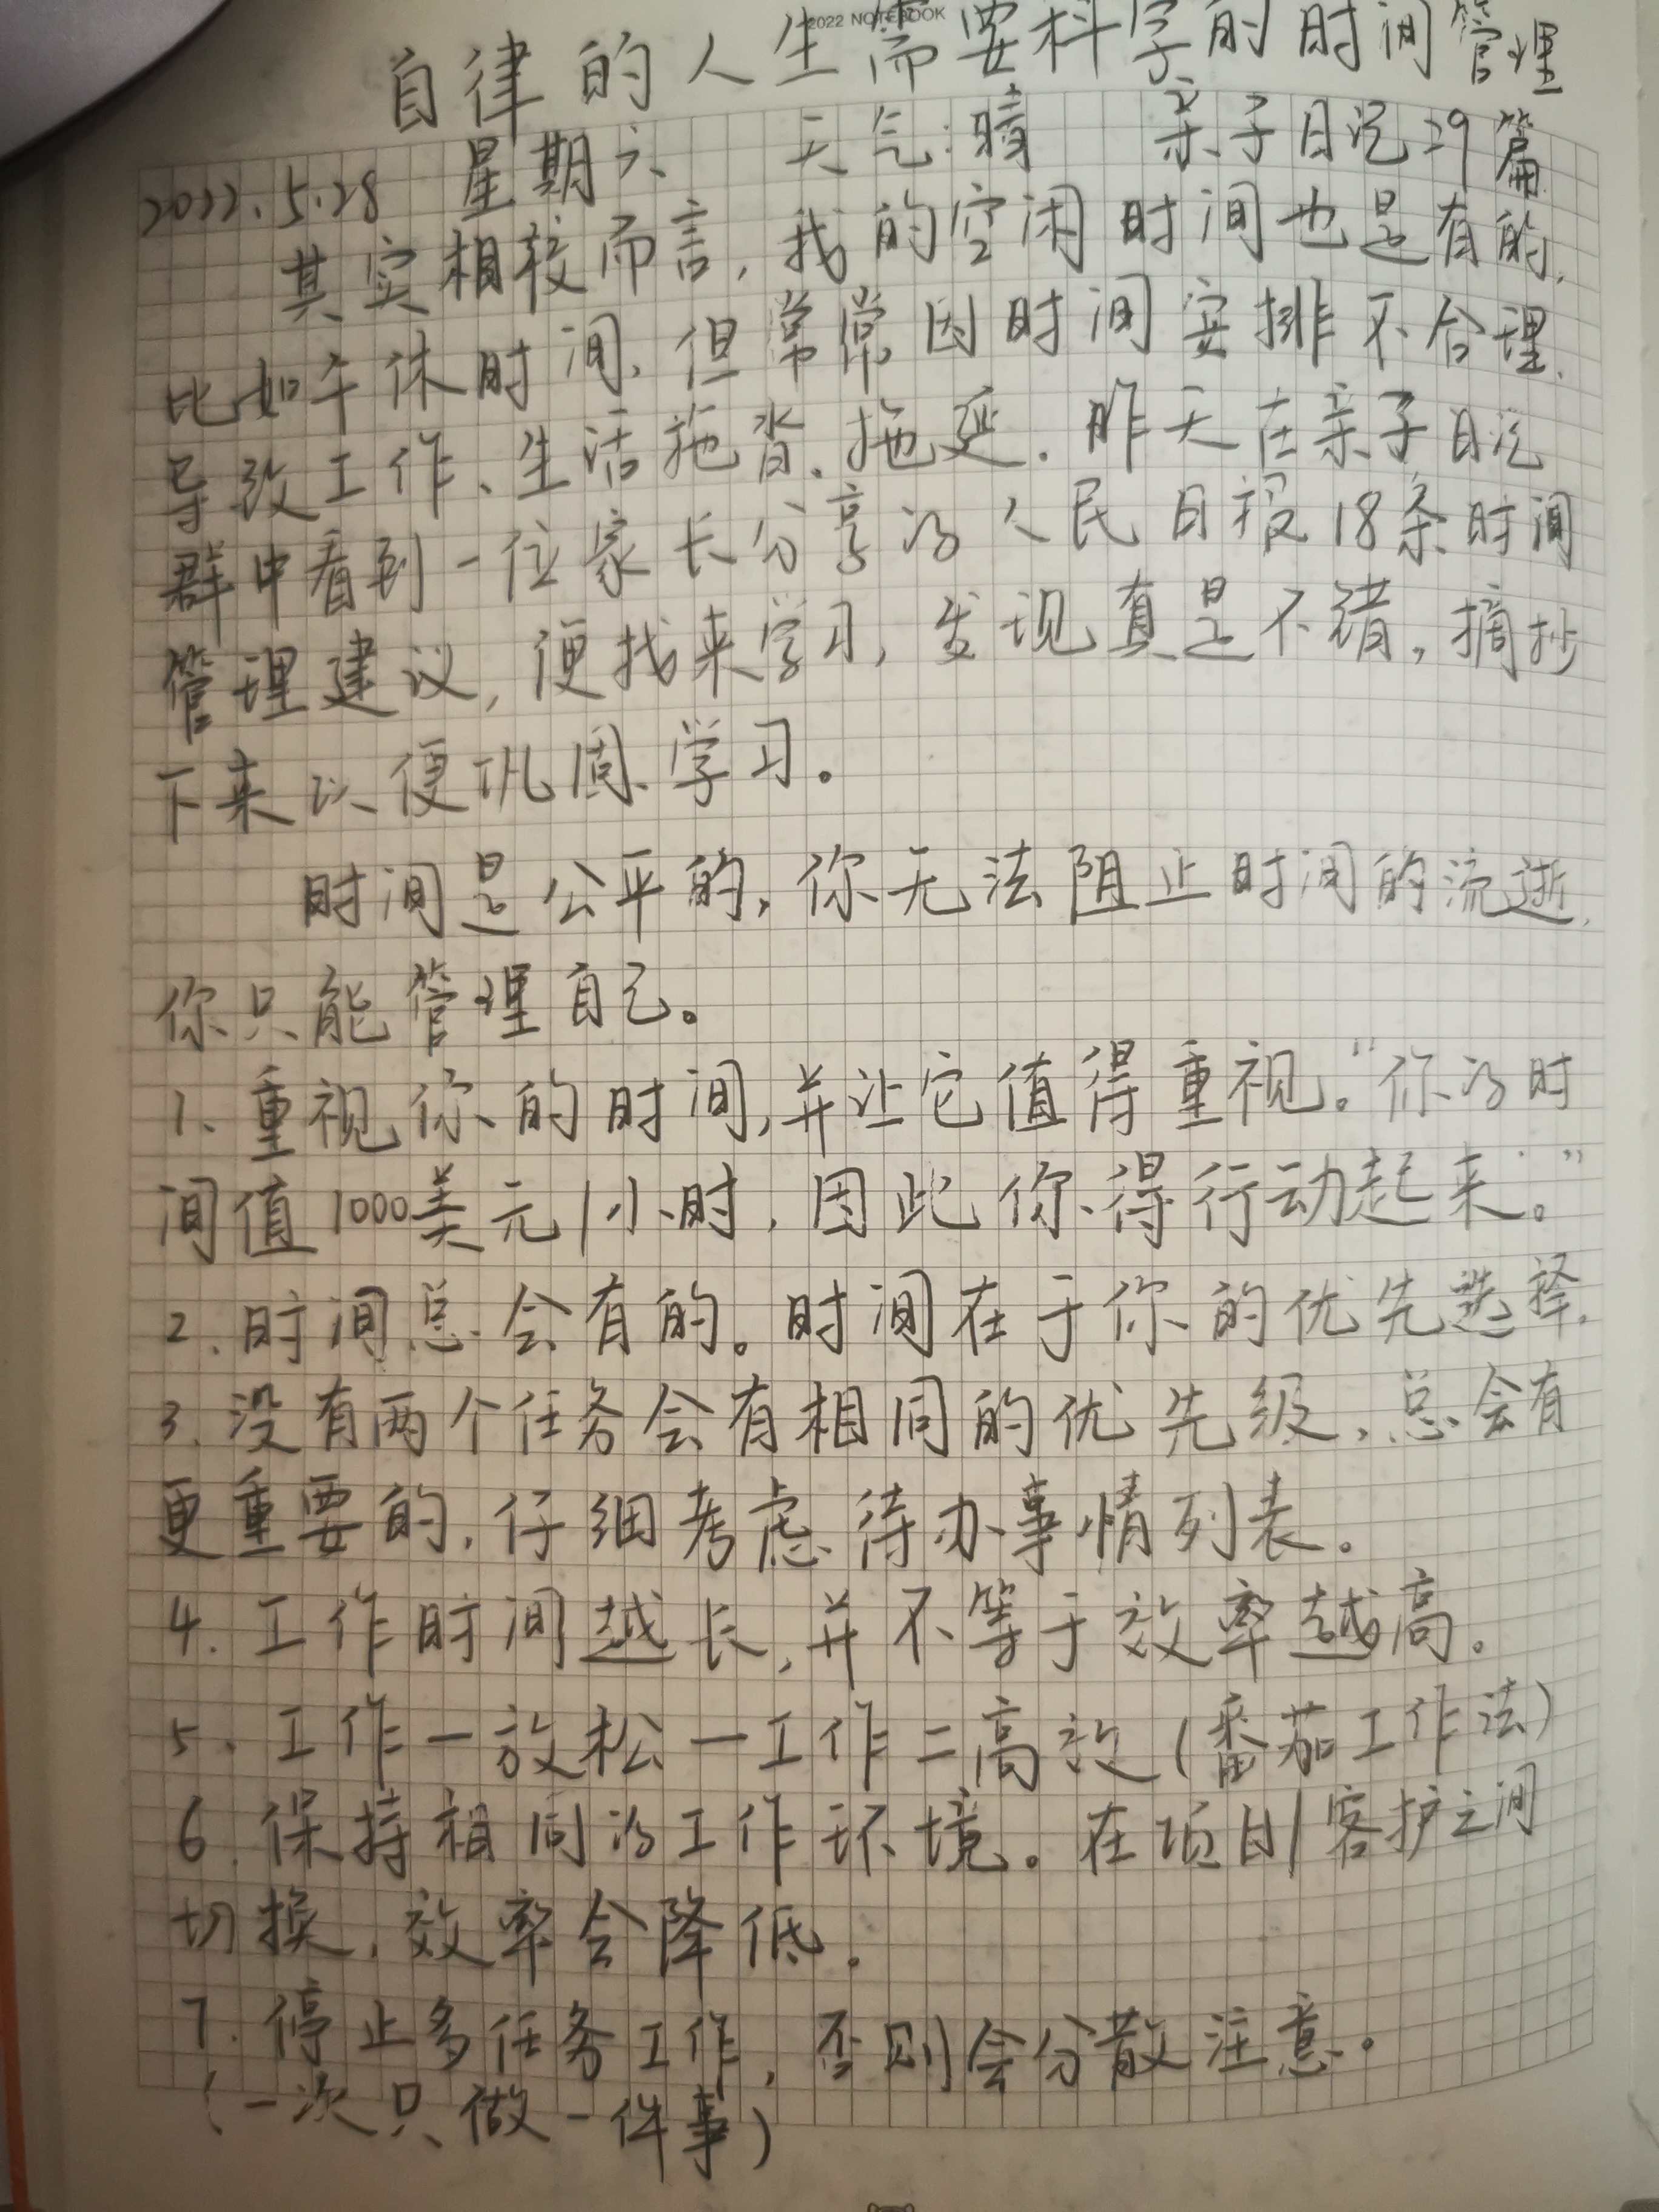 2022 NOTEBOOK
自律的人生需要科学的时间管理
2022.5.28 星期六 天气:晴 亲子日记29篇
其实相较而言,我的空闲时间也是有的,
比如午休时间,但常常因时间安排不合理,
导致工作、生活拖沓、拖延.昨天在亲子日记
群中看到一位家长分享的人民日报18条时间
管理建议,便找来学习,发现真是不错,摘抄
下来以便巩固学习。
时间是公平的,你无法阻止时间的流逝,
你只能管理自己。
1、重视你的时间,并让它值得重视。“你的时
间值1000美元/小时,因此你得行动起来。”
2.时间总会有的。时间在于你的优先选择.
3.没有两个任务会有相同的优先级,总会有
更重要的,仔细考虑待办事情列表。
4.工作时间越长,并不等于效率越高。
5、工作一放松一工作=高效(番茄工作法)
6.保持相同的工作环境。在项目/客护之间
切换,效率会降低.
7.停止多任务工作,否则会分散注意。
(一次只做一件事)